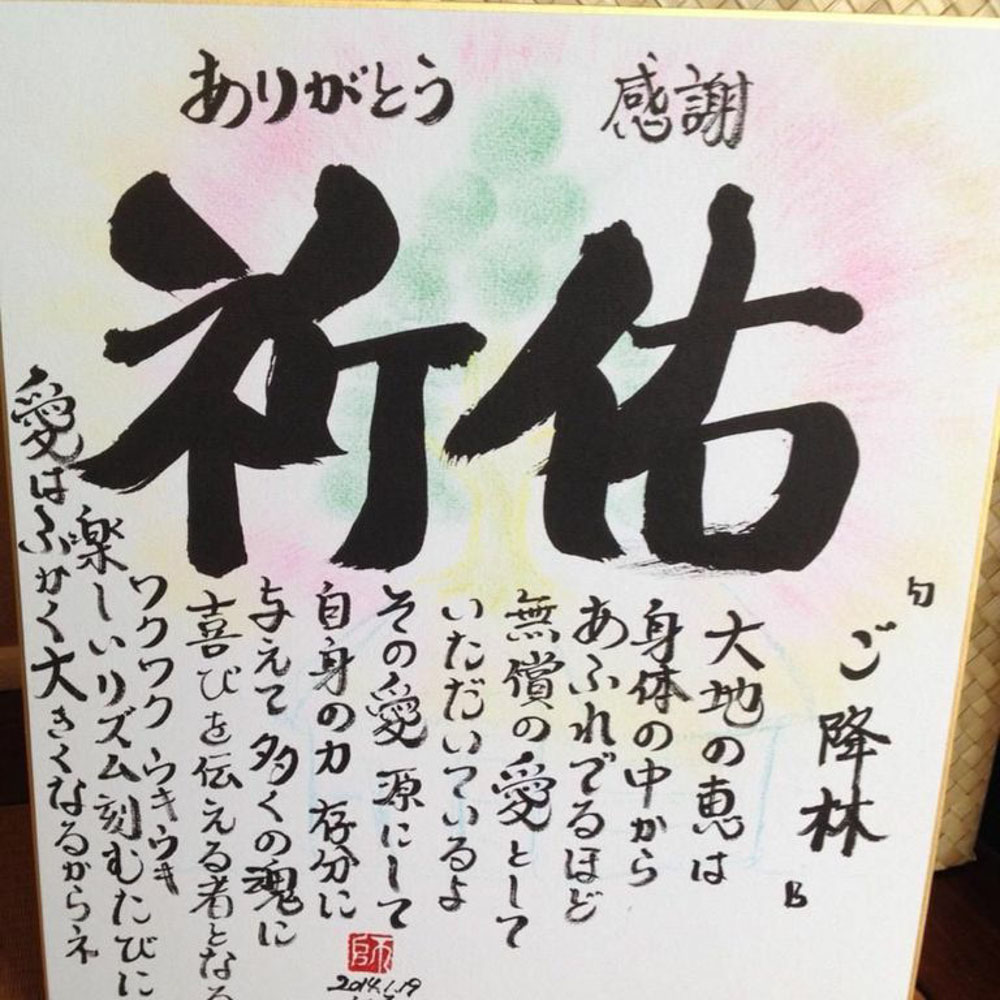 ありがとう 感謝
祈佑
ご降林
大地の恵は
身体の中から
あふれでるほど
無償の愛として
いただいているよ
その愛 源にして
自身の力 存分に
与えて 多くの魂に
喜びを伝える者となる
ワクワク ウキウキ
楽しいリズム刻むたびに
愛はふかく大きくなるからネ
師
2014.1.19